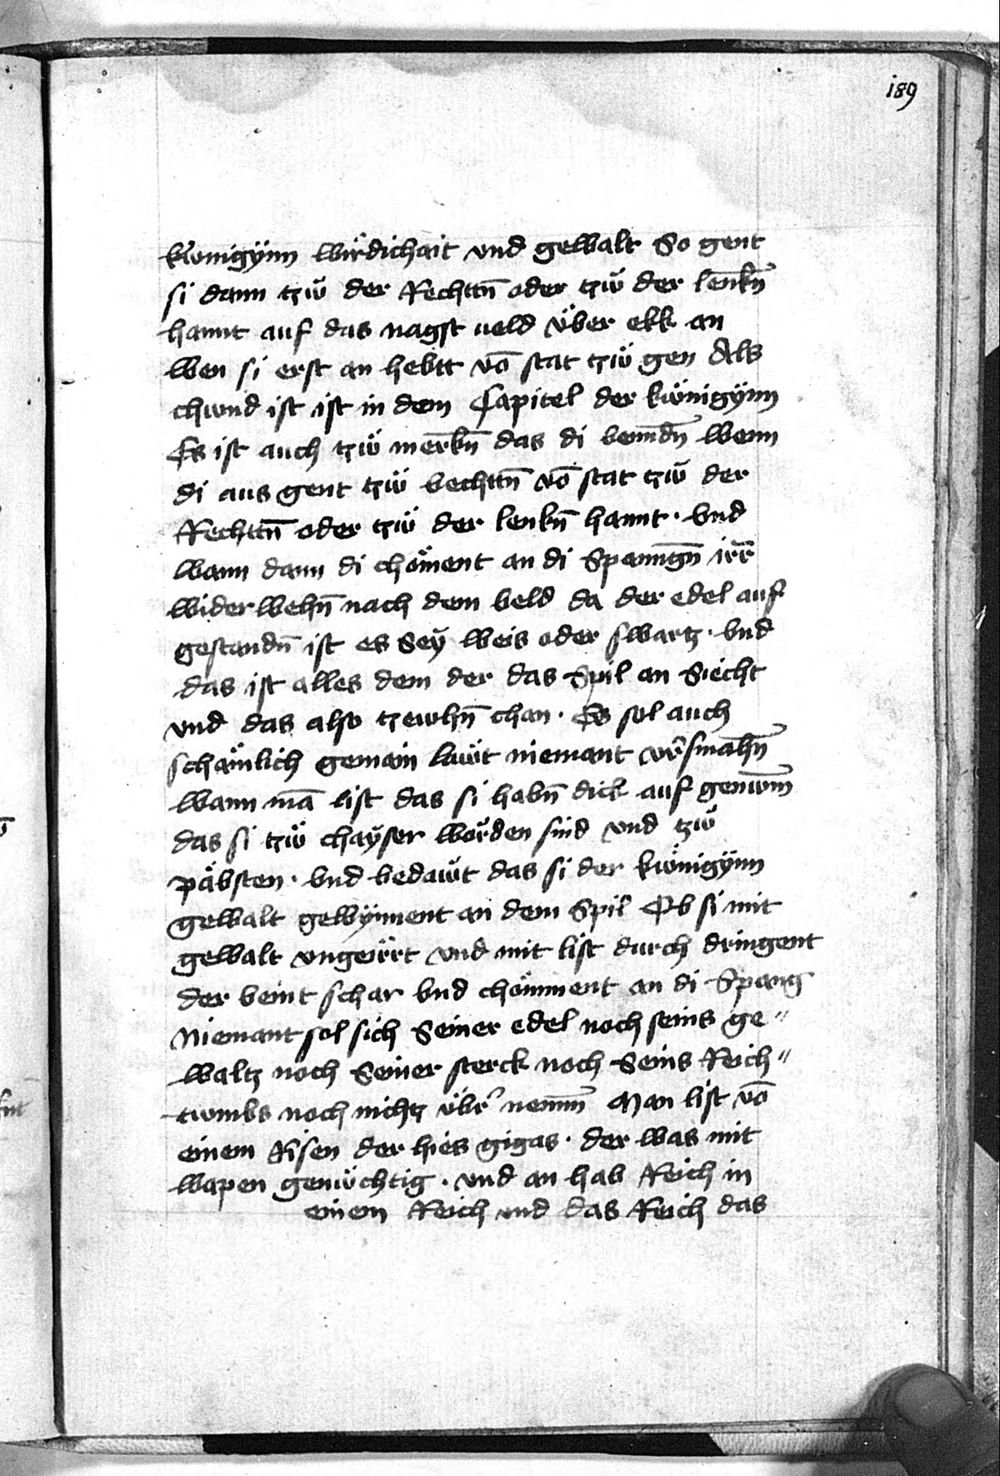 189
kẅnigÿnn wirdichait vnd gewalt So gent
si dann tzw̆ der Rechtn̄ oder tzw̆ der lenkn̄
hannt auf das nagst veld v̈ber ekk an
wen si erst an hebtt vō stat tzw̆ gen Als
chund ist ist in dem Capitel der kẅnigÿnn
Es ist auch tzw̆ merkn̄ das di vennd̄n wenn
di aus gent tzw̆ vechttn̄ vō stat tzw̆ der
Rechttn̄ oder tzw̆ der lenkn̄ hannt · vnd
wann dann di chöment an di Spannḡn irr̄
widerwehn̄ nach dem veld da der edel auf
gestandn̄ ist es Seÿ weis oder swartz · vnd
das ist alles dem der das Spil an Siecht
vnd das also tzewhn̄ chan · Es sol auch
schämlich gemain läwt niemant vr̄smahn̄
wann mā list das si habn̄ dick auf genwm̄
das si tzw̆ chaÿser worden sind vnd tzw̆
päbsten · vnd bedawt das si der kẅnigÿnn
gewalt gewÿnnent an dem Spil Ob si mit
gewalt vngeirrt vnd mit list durch dringent
der veint schar vnd chömment an di Spang
Niemant sol sich Seiner edel noch seins ge〃
waltz noch Seiner sterck noch Seins Reich〃
twmbs noch nichtz v̈br̄ nemm̄ Man list vō
einem Risen der hies gigas · der was mit
wapen genẅchtig · vnd an hab Reich in
einem Reich vnd das Reich das